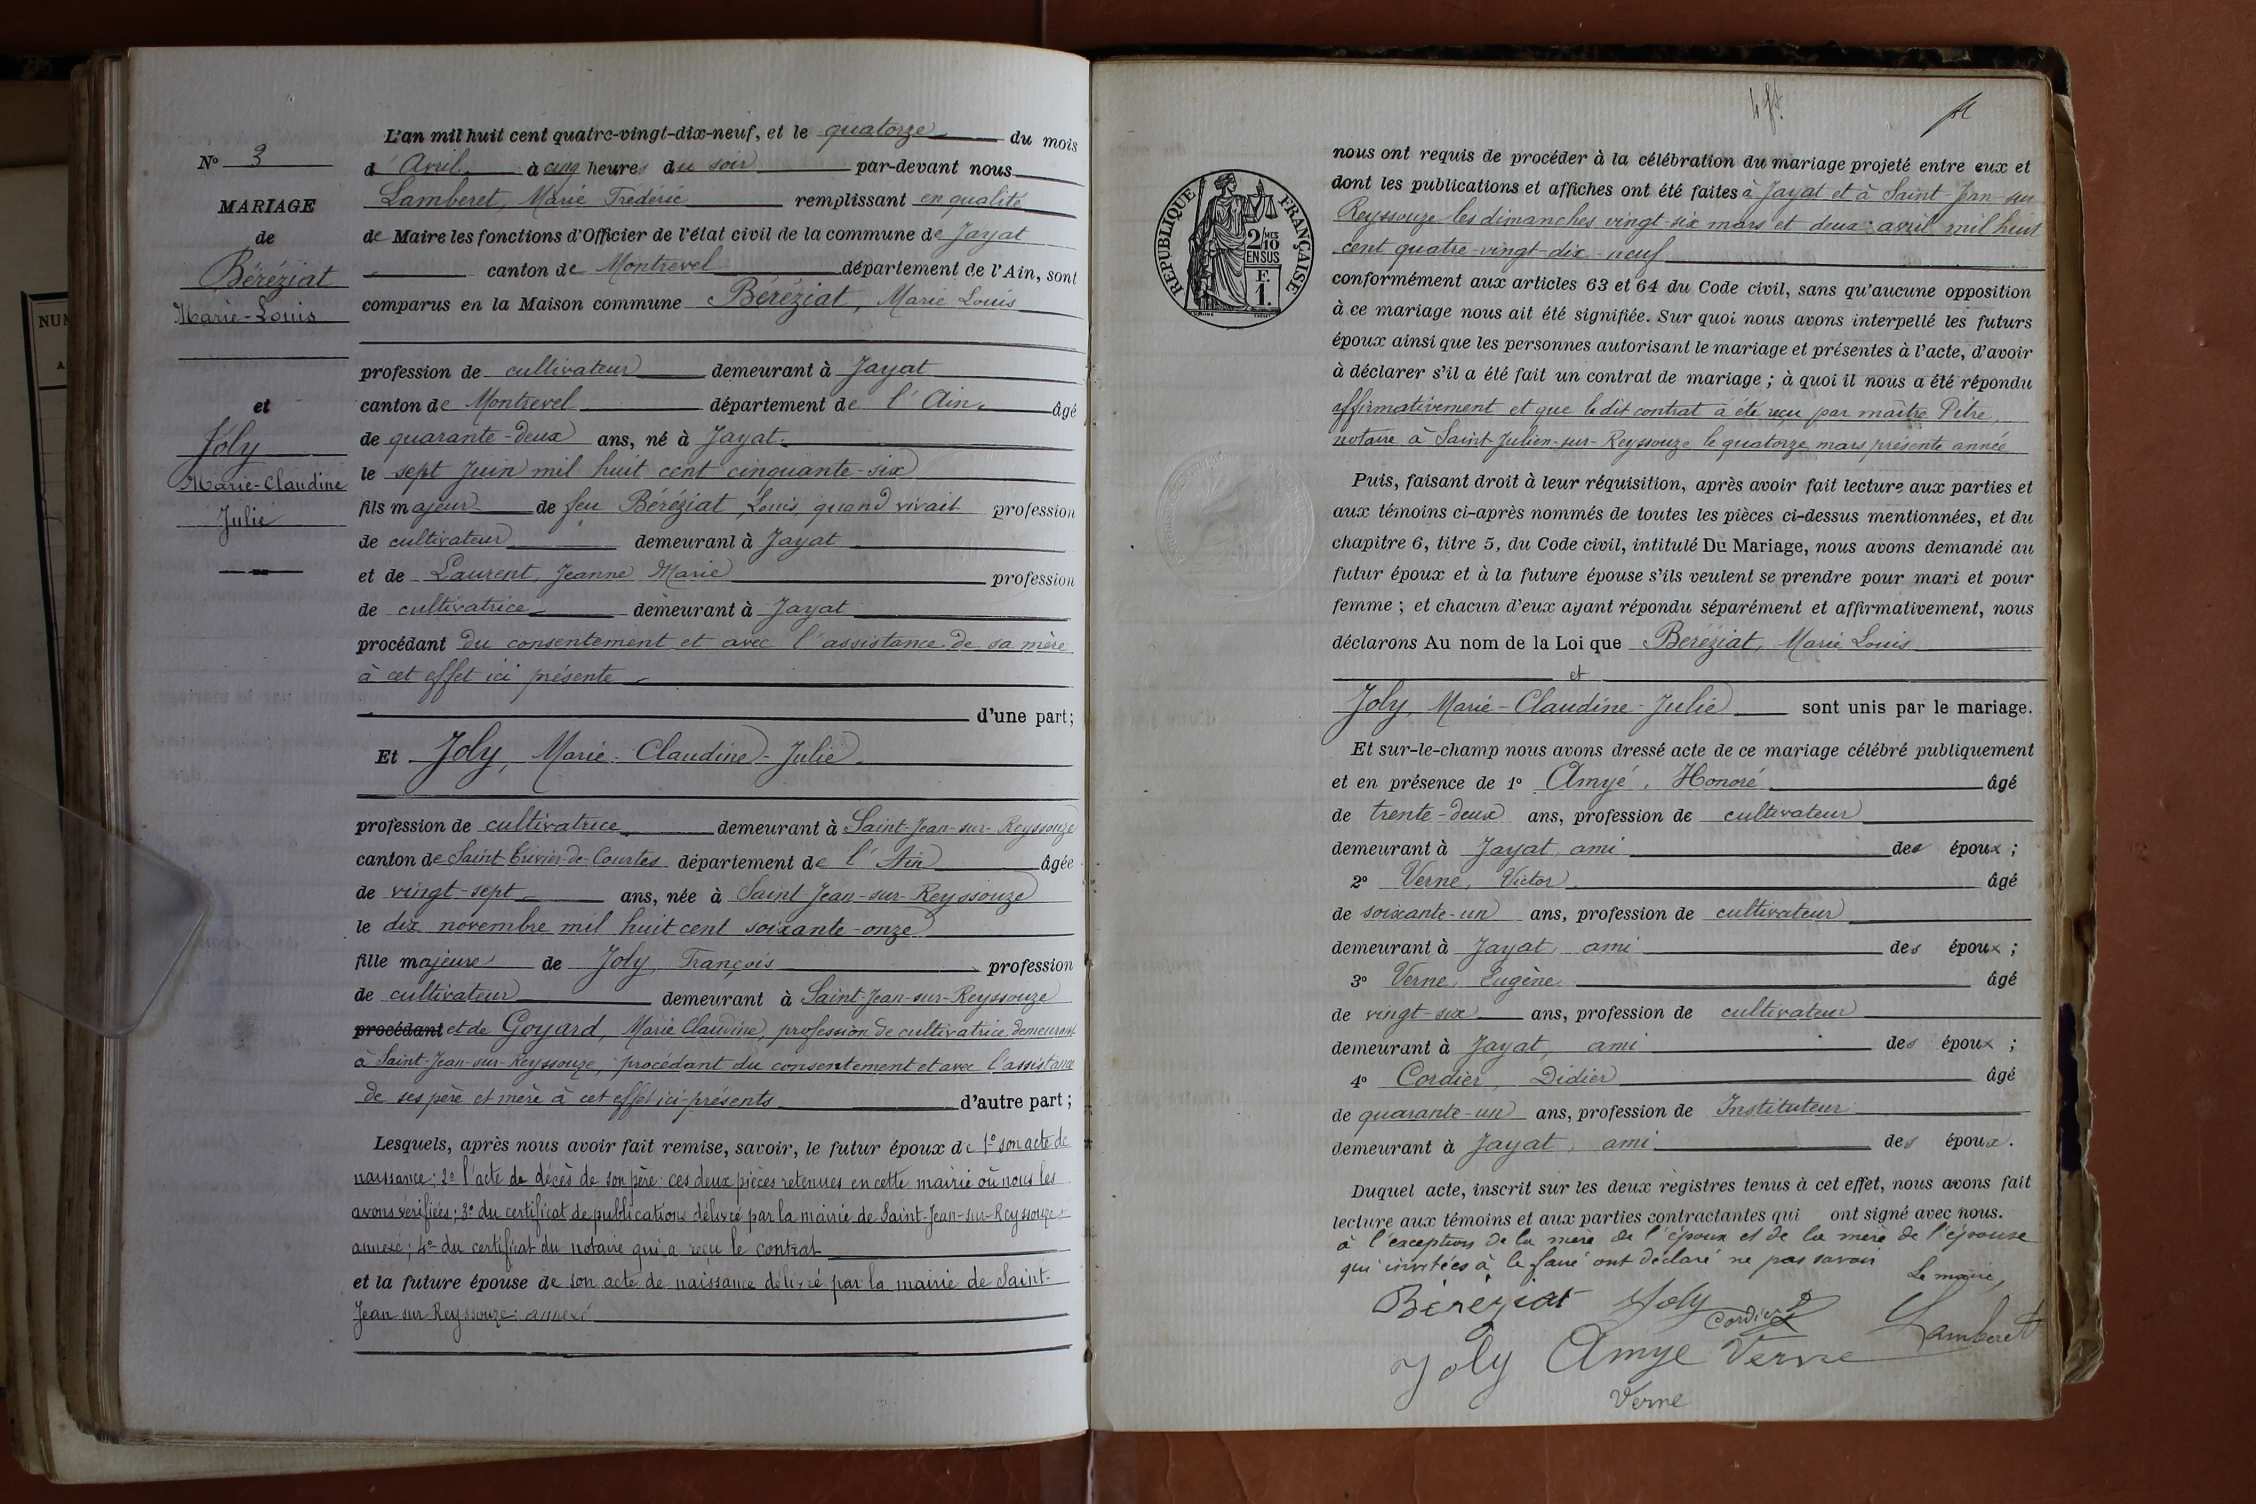 N° 3
MARIAGE
de
Béréziat
Marie-Louis
et
Joly
Marie-Claudine
Julie
L'an mil huit cent quatre-vingt-dix-neuf, et le quatorze du mois
d'Avril à cinq heures du soir par-devant nous
Lamberet, Marie Frédéric remplissant en qualité
de Maire les fonctions d'Officier de l'état civil de la commune de Jayat
canton de Montrevel département de l'Ain, sont
comparus en la Maison commune Béréziat, Marie Louis
profession de cultivateur demeurant à Jayat
canton de Montrevel département de l'Ain âgé
de quarante-deux ans, né à Jayat
le sept Juin mil huit cent cinquante-six
fils majeur de feu Béréziat, Louis, quand vivait profession
de cultivateur demeurant à Jayat
et de Laurent, Jeanne Marie profession
de cultivatrice demeurant à Jayat
procédant du consentement et avec l'assistance de sa mère
à cet effet ici présente
d'une part;
Et Joly, Marie-Claudine-Julie
profession de cultivatrice demeurant à Saint-Jean-sur-Reyssouze
canton de Saint-Trivier-de-Courtes département de l'Ain âgée
de vingt-sept ans, née à Saint-Jean-sur-Reyssouze
le dix novembre mil huit cent soixante-onze
fille majeure de Joly, François profession
de cultivateur demeurant à Saint-Jean-sur-Reyssouze
procédant et de Goyard, Marie Claudine, profession de cultivatrice demeurant
à Saint-Jean-sur-Reyssouze, procédant du consentement et avec l'assistance
de ses père et mère à cet effet ici-présents d'autre part;
Lesquels, après nous avoir fait remise, savoir, le futur époux de 1° son acte de
naissance; 2° l'acte de décès de son père: ces deux pièces retenues en cette mairie où nous les
avons vérifiées; 3° du certificat de publications délivré par la mairie de Saint-Jean-sur-Reyssouze
annexé; 4° du certificat du notaire qui a reçu le contrat
et la future épouse de son acte de naissance délivré par la mairie de Saint-
Jean sur Reyssouze: annexé
RÉPUBLIQUE FRANÇAISE
2/10MES
EN SUS
F.
1.
nous ont requis de procéder à la célébration du mariage projeté entre eux et
dont les publications et affiches ont été faites à Jayat et à Saint-Jean-sur
Reyssouze les dimanches vingt-six mars et deux avril mil huit
cent quatre-vingt-dix-neuf
conformément aux articles 63 et 64 du Code civil, sans qu'aucune opposition
à ce mariage nous ait été signifiée. Sur quoi nous avons interpellé les futurs
époux ainsi que les personnes autorisant le mariage et présentes à l'acte, d'avoir
à déclarer s'il a été fait un contrat de mariage; à quoi il nous a été répondu
affirmativement et que le dit contrat a été reçu par maître Pitre,
notaire à Saint-Julien-sur-Reyssouze le quatorze mars présente année
Puis, faisant droit à leur réquisition, après avoir fait lecture aux parties et
aux témoins ci-après nommés de toutes les pièces ci-dessus mentionnées, et du
chapitre 6, titre 5, du Code civil, intitulé Du Mariage, nous avons demandé au
futur époux et à la future épouse s'ils veulent se prendre pour mari et pour
femme; et chacun d'eux ayant répondu séparément et affirmativement, nous
déclarons Au nom de la Loi que Béréziat, Marie Louis
et
Joly, Marie-Claudine-Julie sont unis par le mariage.
Et sur-le-champ nous avons dressé acte de ce mariage célébré publiquement
et en présence de 1° Amyé, Honoré âgé
de trente-deux ans, profession de cultivateur
demeurant à Jayat, ami des époux;
2° Verne, Victor âgé
de soixante-un ans, profession de cultivateur
demeurant à Jayat, ami des époux;
3° Verne, Eugène âgé
de vingt-six ans, profession de cultivateur
demeurant à Jayat, ami des époux;
4° Cordier, Didier âgé
de quarante-un ans, profession de Instituteur
demeurant à Jayat, ami des époux.
Duquel acte, inscrit sur les deux registres tenus à cet effet, nous avons fait
lecture aux témoins et aux parties contractantes qui ont signé avec nous.
à l'exception de la mère de l'époux et de la mère de l'épouse
qui invitées à le faire ont déclaré ne pas savoir
Le maire,
Béréziat Joly Cordier Lamberet
Joly Amyé Verne
Verne